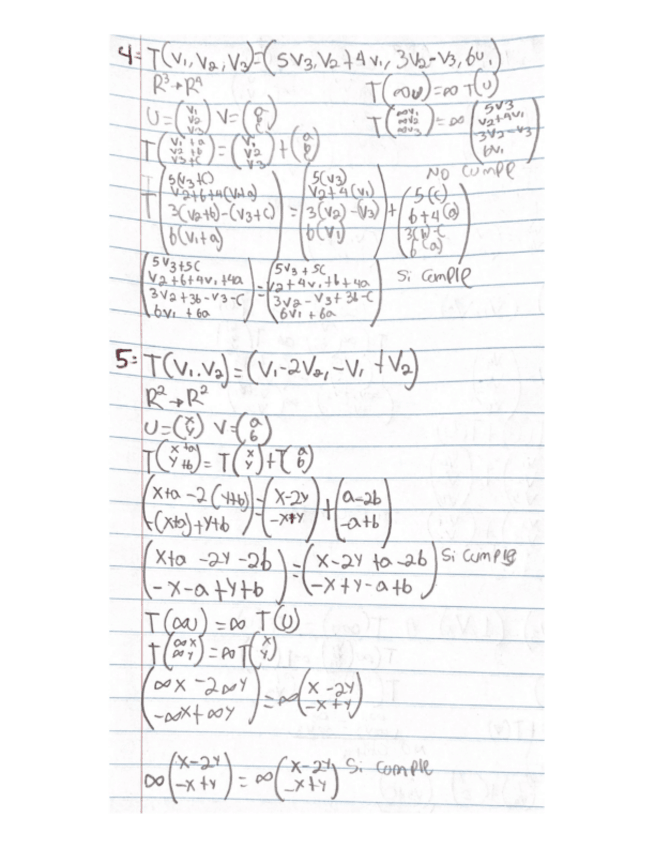 4= T(V₁, V₂, V₃)=(5V₃, V₂+4V₁, 3V₂-V₃, 6U₁)
R³→R⁴
T(∞U)=∞T(U)
U=(V₁ V₂ V₃) V=(a b c)
T(∞V₁ ∞V₂ ∞V₃)=∞(5V3 V₂+4V₁ 3V₂-V3 6V₁)
T(V₁+a V₂+b V₃+c)=(V₁ V₂ V₃)+(a b c)
NO cumple
T(5(V₃+C) V₂+b+4(V₁+a) 3(V₂+b)-(V₃+C) 6(V₁+a))=(5(V₃) V₂+4(V₁) 3(V₂)-(V₃) 6(V₁))+(5(c) b+4(a) 3(b)-C 6(a))
(5V₃+5C V₂+b+4V₁+4a 3V₂+3b-V₃-C 6V₁+6a)=(5V₃+5C V₂+4V₁+b+4a 3V₂-V₃+3b-C 6V₁+6a) Si cumple
5= T(V₁.V₂)=(V₁-2V₂,-V₁+V₂)
R²→R²
U=(x y) V=(a b)
T(x+a y+b)=T(x y)+T(a b)
(x+a-2(y+b) -(x+a)+y+b)=(x-2y -x+y)+(a-2b -a+b)
(x+a-2y-2b -x-a+y+b)=(x-2y+a-2b -x+y-a+b) Si cumple
T(∞U)=∞T(U)
T(∞x ∞y)=∞T(x y)
(∞x-2∞y -∞x+∞y)=∞(x-2y -x+y)
∞(x-2y -x+y)=∞(x-2y -x+y) Si cumple